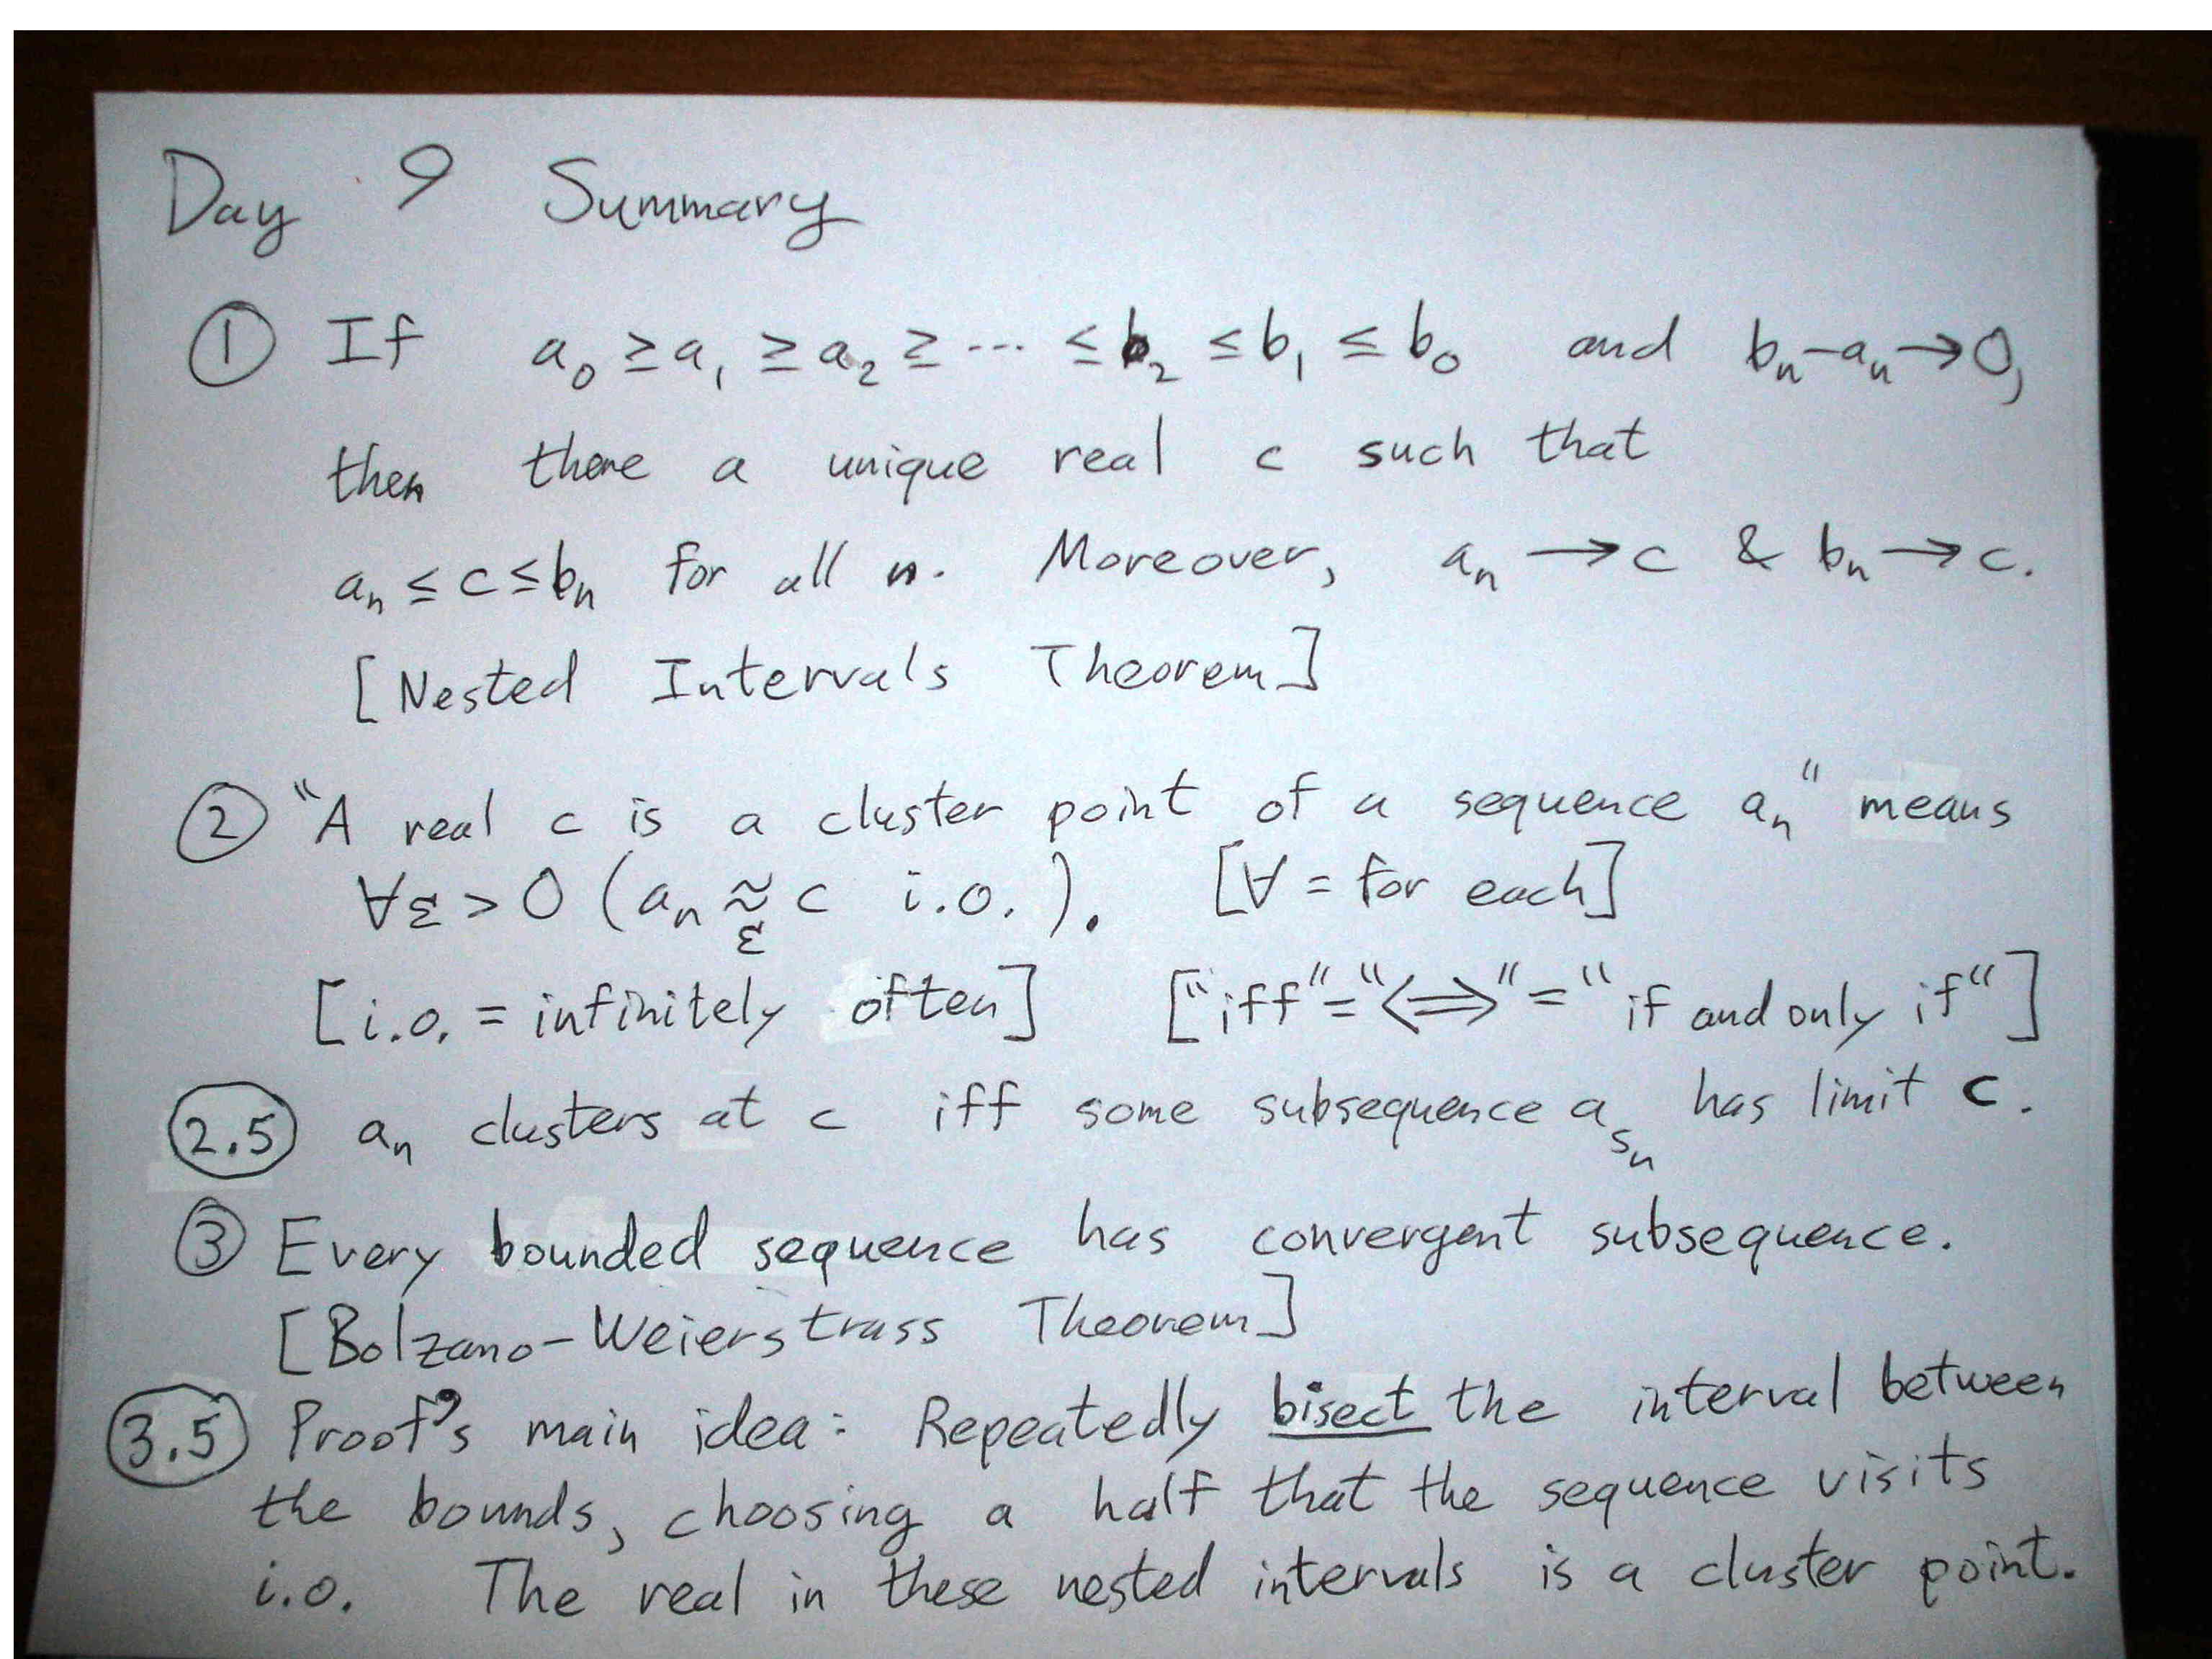 Day 9 Summary
① If a₀ ≥ a₁ ≥ a₂ ≥ ··· ≤ b₂ ≤ b₁ ≤ b₀ and bₙ-aₙ→0,
then there a unique real c such that
aₙ ≤ c ≤ bₙ for all n. Moreover, aₙ → c & bₙ → c.
[Nested Intervals Theorem]
② "A real c is a cluster point of a sequence aₙ" means
∀ε > 0 (aₙ ≈_ε c i.o.). [∀ = for each]
[i.o. = infinitely often] ["iff"="⟺"="if and only if"]
(2.5) aₙ clusters at c iff some subsequence a_{s_n} has limit c.
③ Every bounded sequence has convergent subsequence.
[Bolzano-Weierstrass Theorem]
(3.5) Proof's main idea: Repeatedly bisect the interval between
the bounds, choosing a half that the sequence visits
i.o. The real in these nested intervals is a cluster point.